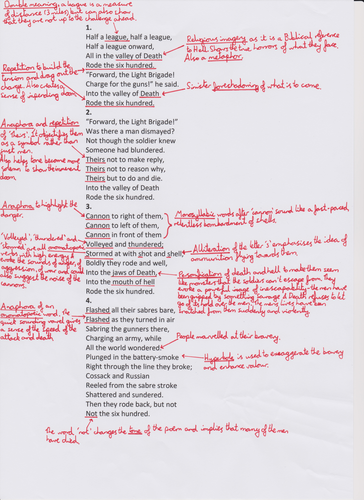 Double meaning: a league is a measure
of distance (3 miles) but can also show
that they are not up to the challenge ahead.
1.
Half a league, half a league,
Half a league onward,
All in the valley of Death
Rode the six hundred.
"Forward, the Light Brigade!
Charge for the guns!" he said.
Into the valley of Death
Rode the six hundred.
Religious imagery as it is a Biblical reference
to Hell. Shows the true horrors of what they face.
Also a metaphor.
Repetition to build the
tension and drag out the
charge. Also creates a
sense of impending doom.
Sinister foreshadowing of what is to come.
2.
"Forward, the Light Brigade!"
Was there a man dismayed?
Not though the soldier knew
Someone had blundered.
Theirs not to make reply,
Theirs not to reason why,
Theirs but to do and die.
Into the valley of Death
Rode the six hundred.
Anaphora and repetition
of 'theirs'. It objectifies them
as a symbol rather than
just men.
Also helps tone become more
solemn to show the imminent
doom.
3.
Cannon to right of them,
Cannon to left of them,
Cannon in front of them
Volleyed and thundered;
Stormed at with shot and shell,
Boldly they rode and well,
Into the jaws of Death,
Into the mouth of hell
Rode the six hundred.
Anaphora to highlight the
danger.
'Volleyed', 'thundered' and
'stormed' are all onomatopoeic
verbs with high energy &
evoke the sounds of anger,
aggression, of war and could
also suggest the noise of the
cannons.
Monosyllabic words after 'cannon' sound like a fast-paced,
relentless bombardment of shells.
Alliteration of the letter 's' emphasises the idea of
ammunition flying towards them.
Personification of death and hell to make them seem
like monsters that the soldiers can't escape from. They
create a powerful image of inescapability - the men have
been gripped by something savage & Death refuses to let
go of its hold over the men. The men's lives have been
snatched from them suddenly and violently.
4.
Flashed all their sabres bare,
Flashed as they turned in air
Sabring the gunners there,
Charging an army, while
All the world wondered.
Plunged in the battery-smoke
Right through the line they broke;
Cossack and Russian
Reeled from the sabre stroke
Shattered and sundered.
Then they rode back, but not
Not the six hundred.
Anaphora of an
onomatopoeic word. The
quick sounding vowel gives
a sense of the speed of the
attack and death.
People marvelled at their bravery.
Hyperbole is used to exaggerate the bravery
and enhance valour.
The word 'not' changes the tone of the poem and implies that many of the men
have died.